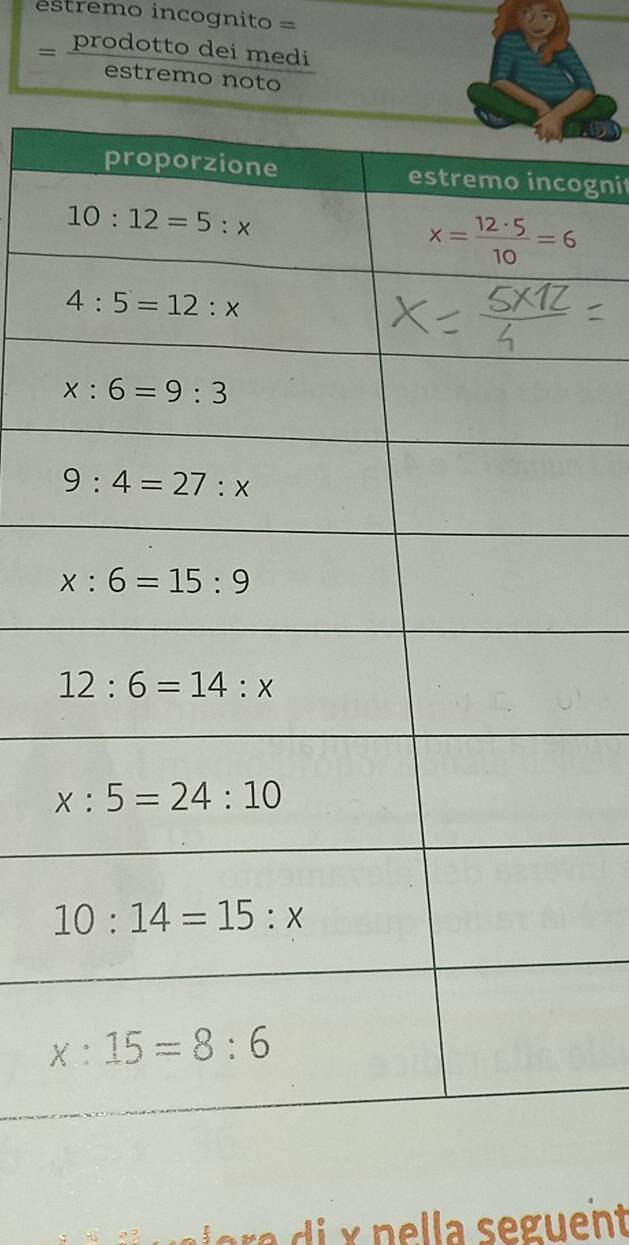 estremo incognito =
= prodotto dei medi
estremo noto
proporzione estremo incognit
10 : 12 = 5 : x x = 12 · 5 / 10 = 6
4 : 5 = 12 : x x = 5x12 / 4 =
x : 6 = 9 : 3
9 : 4 = 27 : x
x : 6 = 15 : 9
12 : 6 = 14 : x
x : 5 = 24 : 10
10 : 14 = 15 : x
x : 15 = 8 : 6
di x nella seguent